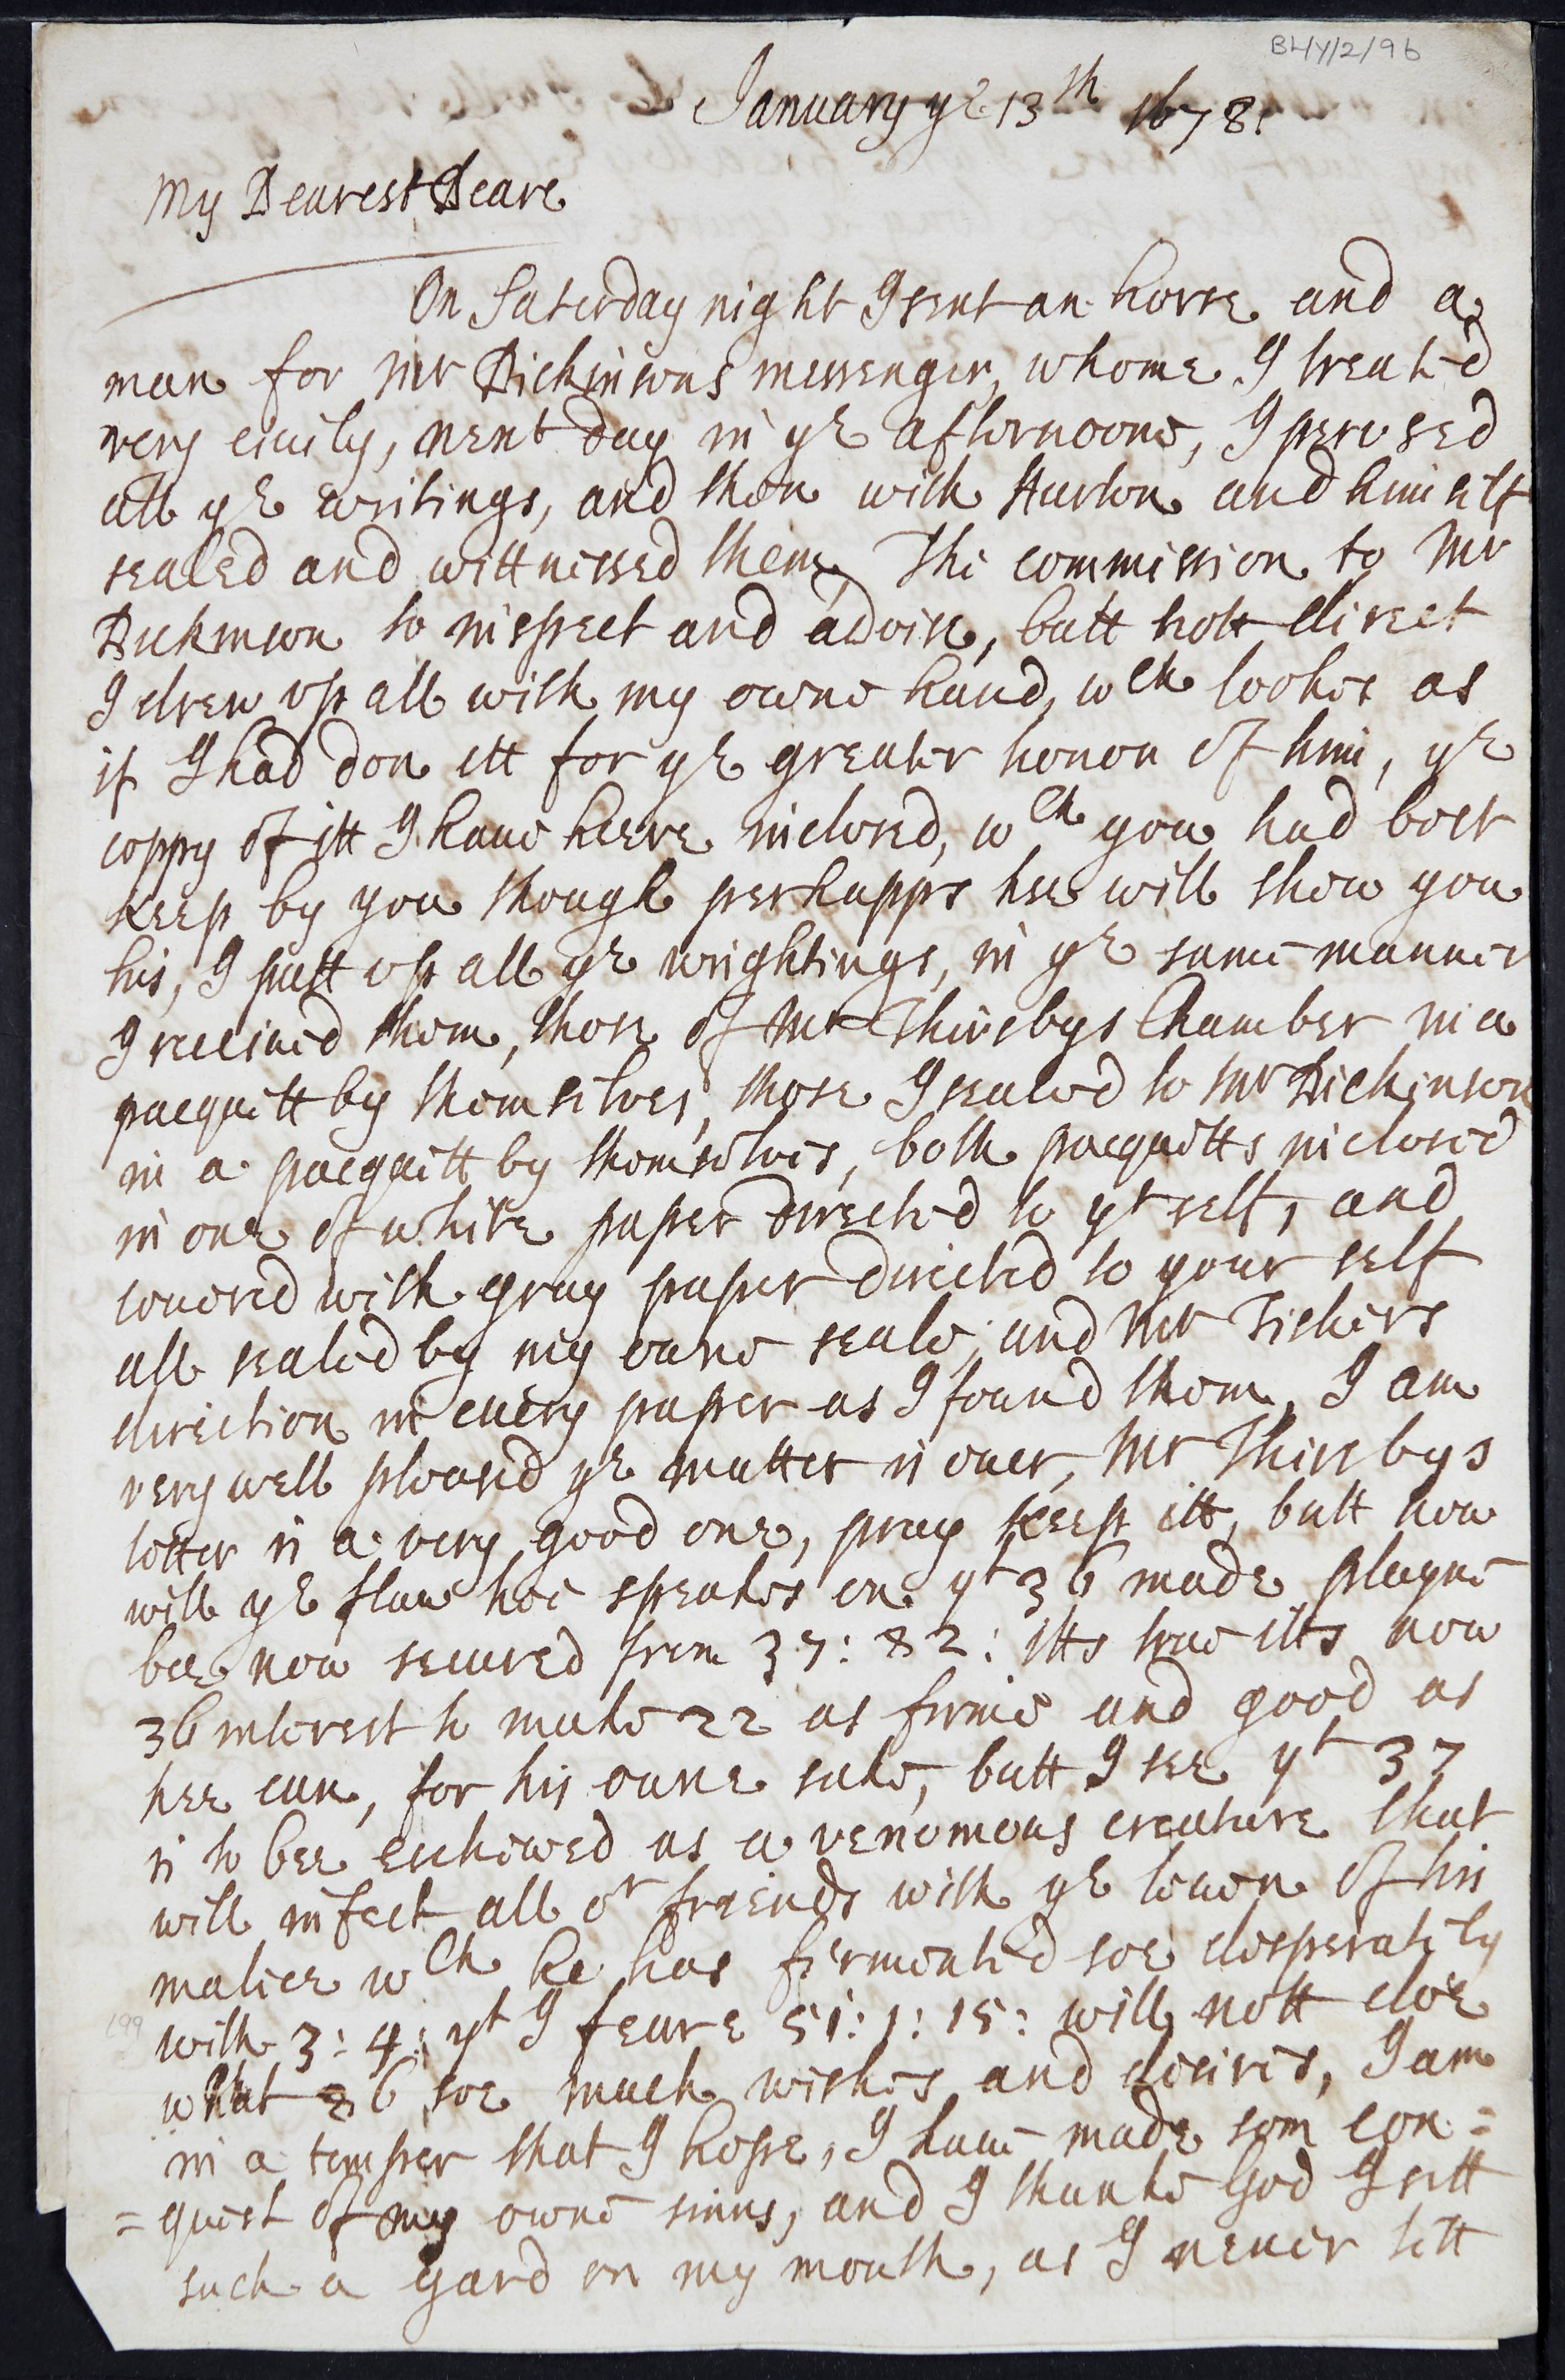 BHY/2/96
January ye 13th 1678:
My Dearest Deare
On Saterday night I sent an horse and a
man for Mr Dickinsons messenger, whome I treated
very civily, next day in ye afternoone, I perused
all ye writings, and then with Hurton and himself
sealed and wittnessed them, The commission to Mr
Dickinson to inspect and advise, butt nott direct
I drew vp all with my owne hand, wch lookes as
if I had don itt for ye greater honou of him, ye
coppy of itt I haue heere inclosed, wch you had best
keep by you though perhapps hee will show you
his, I putt vp all ye wrightings, in ye same manner
I receiued them, those of Mr Thirsbys Chamber in a
pacquitt by themselves, those I sealed to Mr Dickinson
in a pacquitt by themselves, both pacquitts inclosed
in one of white paper directed to yr self, and
couored with gray paper directed to your self
all sealed by my owne seale, and Mr Tickers
direction in euery paper as I found them, I am
very well pleased ye matter is ouer, Mr Thirsbys
letter is a very good one, pray keep itt, butt how
will ye flaw hee speakes on yt 36 made plague
bee now secured from 37: 82: itts true itts now
36 interest to make 22 as firme and good as
hee can, for his owne sake, butt I see yt 37
is to bee eschewed as a venomous creature that
will infect all or freinds with ye leauen of his
malice wch he has fermented soe desperately
with 3: 4: yt I feare 51: 1: 15: will nott doe
what 36 soe much wishes and desires, I am
in a temper that I hope, I haue made som con=
=quest of my owne sinns, and I thanke God I sett
such a gard on my mouth, as I never sett